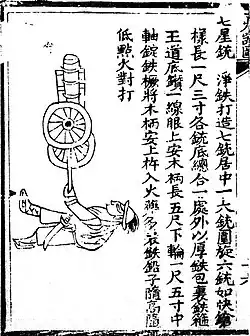 七星銃 淨鐵打造七銃居中一大銃圓旋六銃如快鎗
樣長一尺三寸各銃底總合一處外以厚鐵包裹鐵箍
王道底鑽一線眼上安木柄長五尺下輪一尺五寸中
軸錠鐵橛將木柄安上杵入火藥多裝鐵鉛子隨高隨
低點火對打